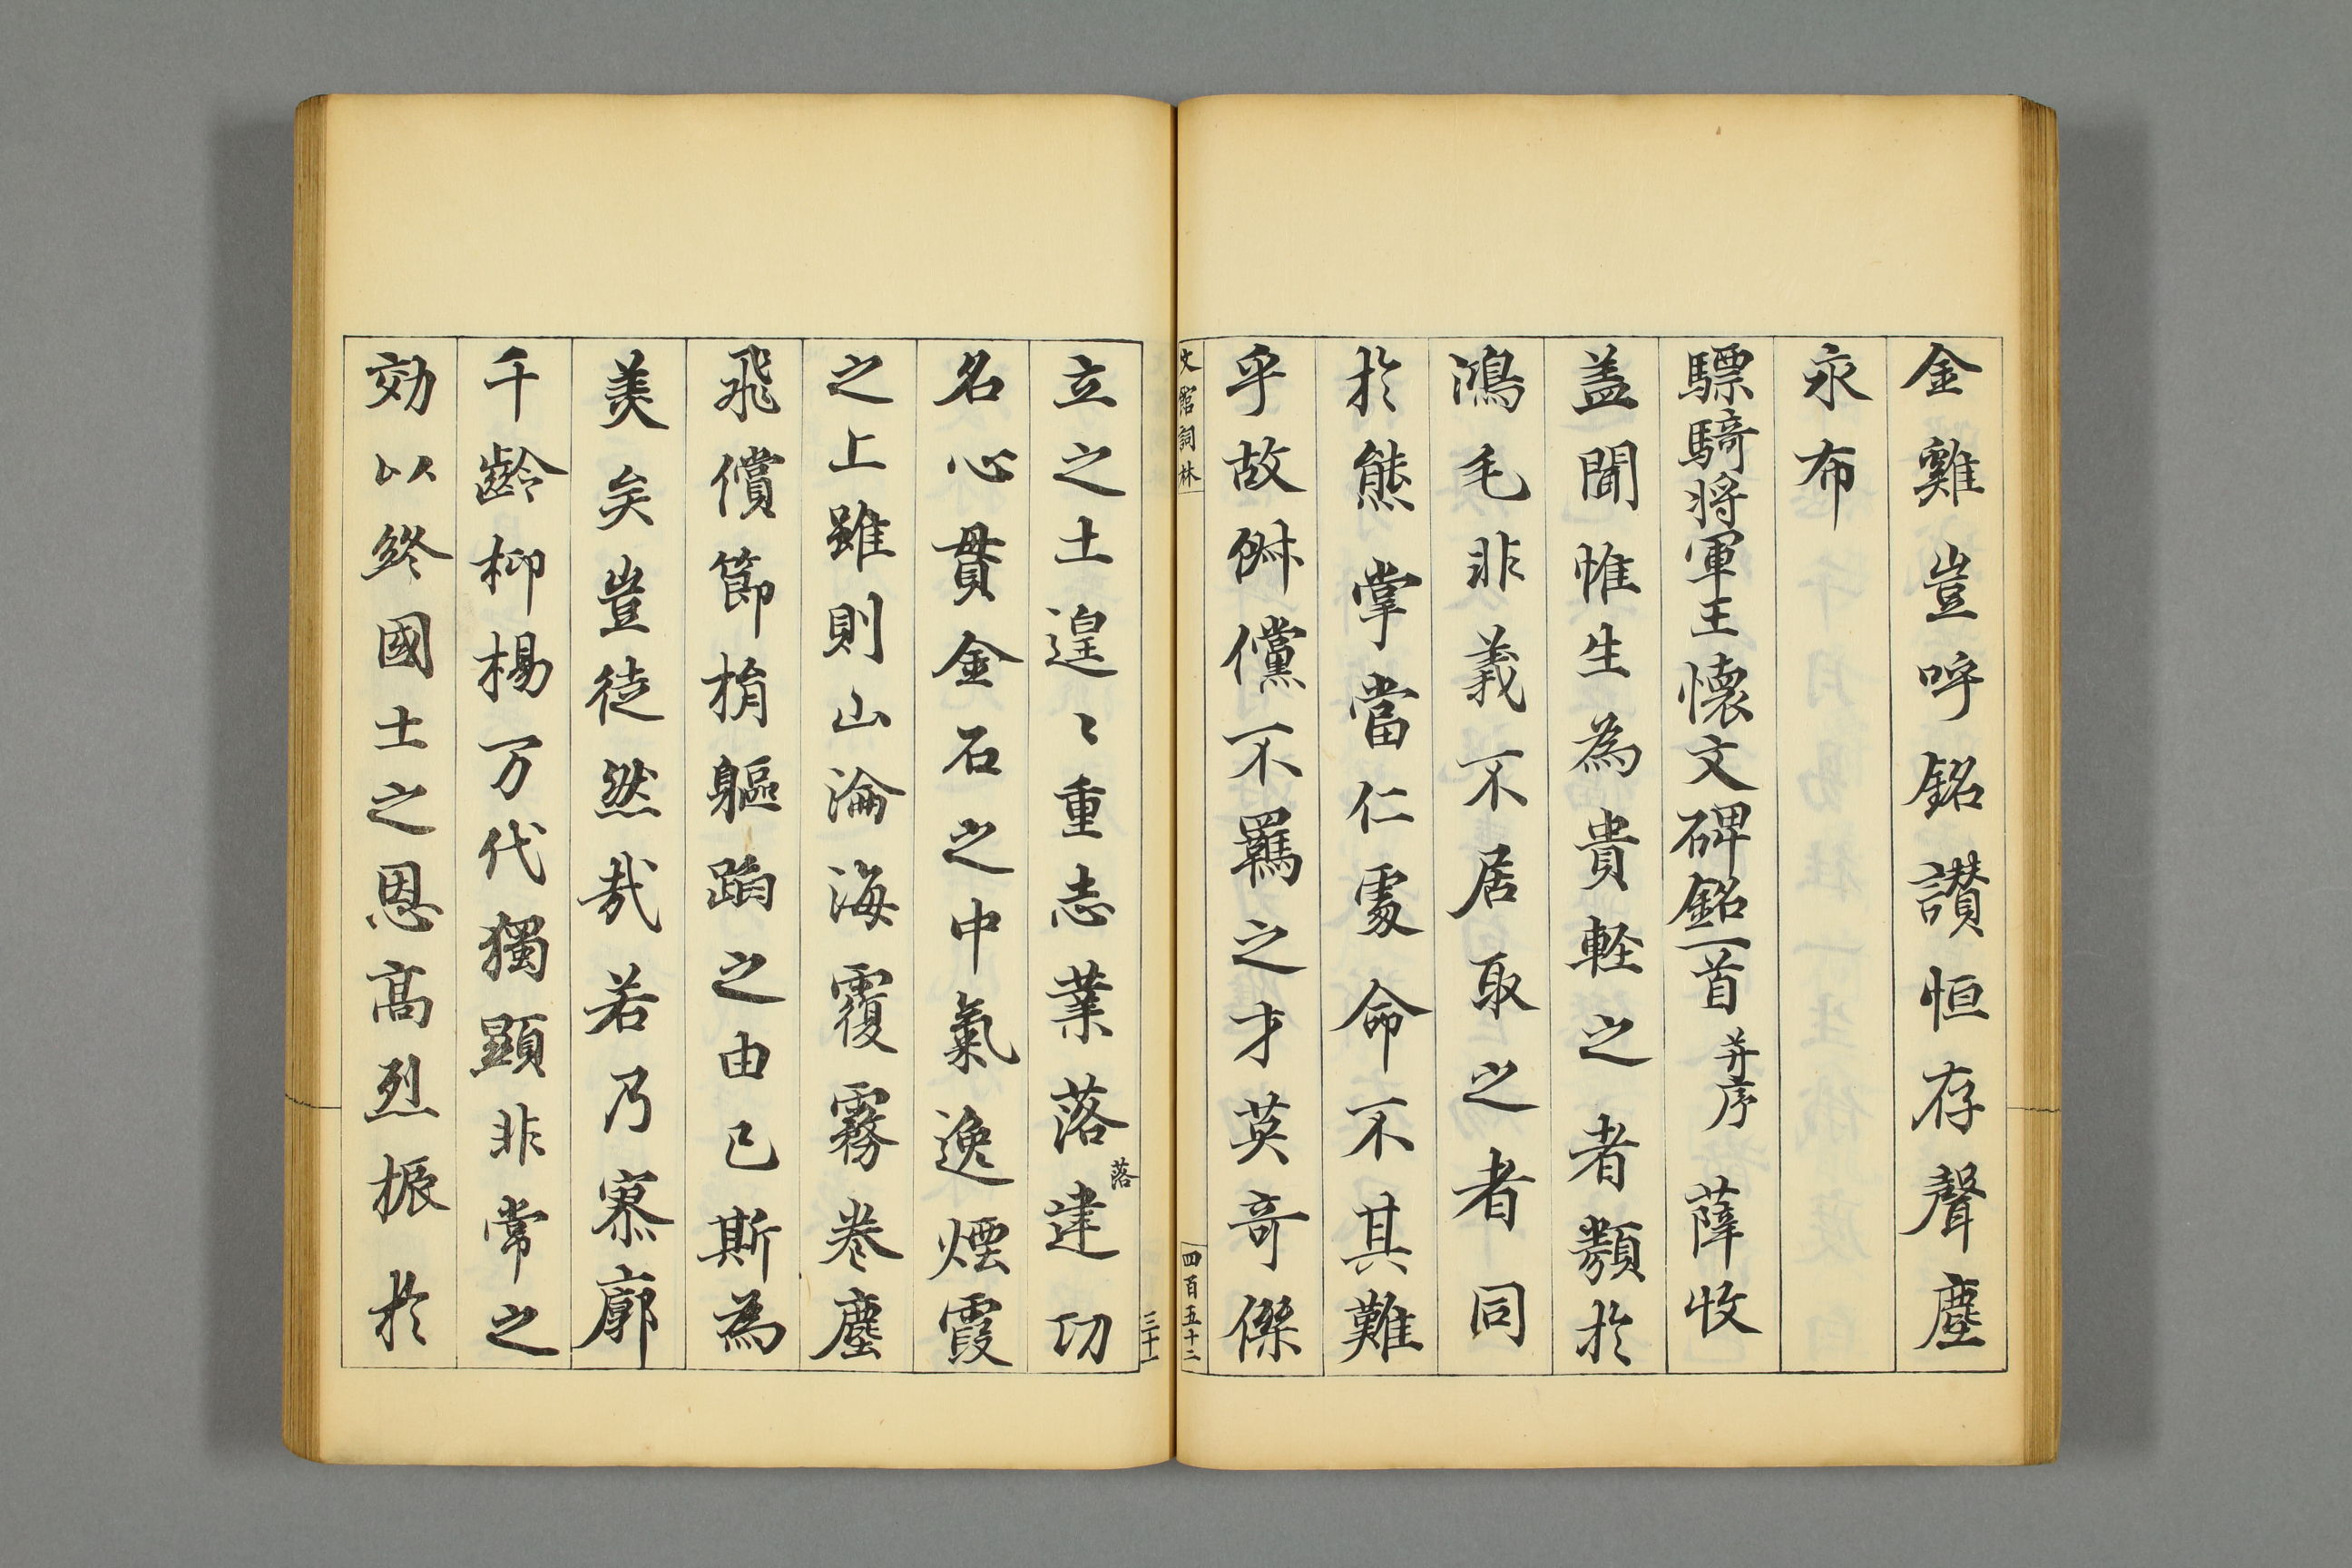 金雞豈呼銘讃恒存聲塵
永布
驃騎將軍王懷文碑銘一首 并序 薩收
盖聞惟生為貴輕之者類於
鴻毛非義不居取之者同
於熊掌當仁處命不其難
乎故倜儻不羈之才英奇傑
文館詞林 四百五十二
三十一
立之士遑〻重志業落落建功
名心貫金石之中氣逸煙霞
之上雖則山淪海覆霧卷塵
飛償節捐軀蹈之由己斯為
美矣豈徒然哉若乃寥廓
千齡抑揚万代獨顯非常之
効以終國士之恩高烈振於